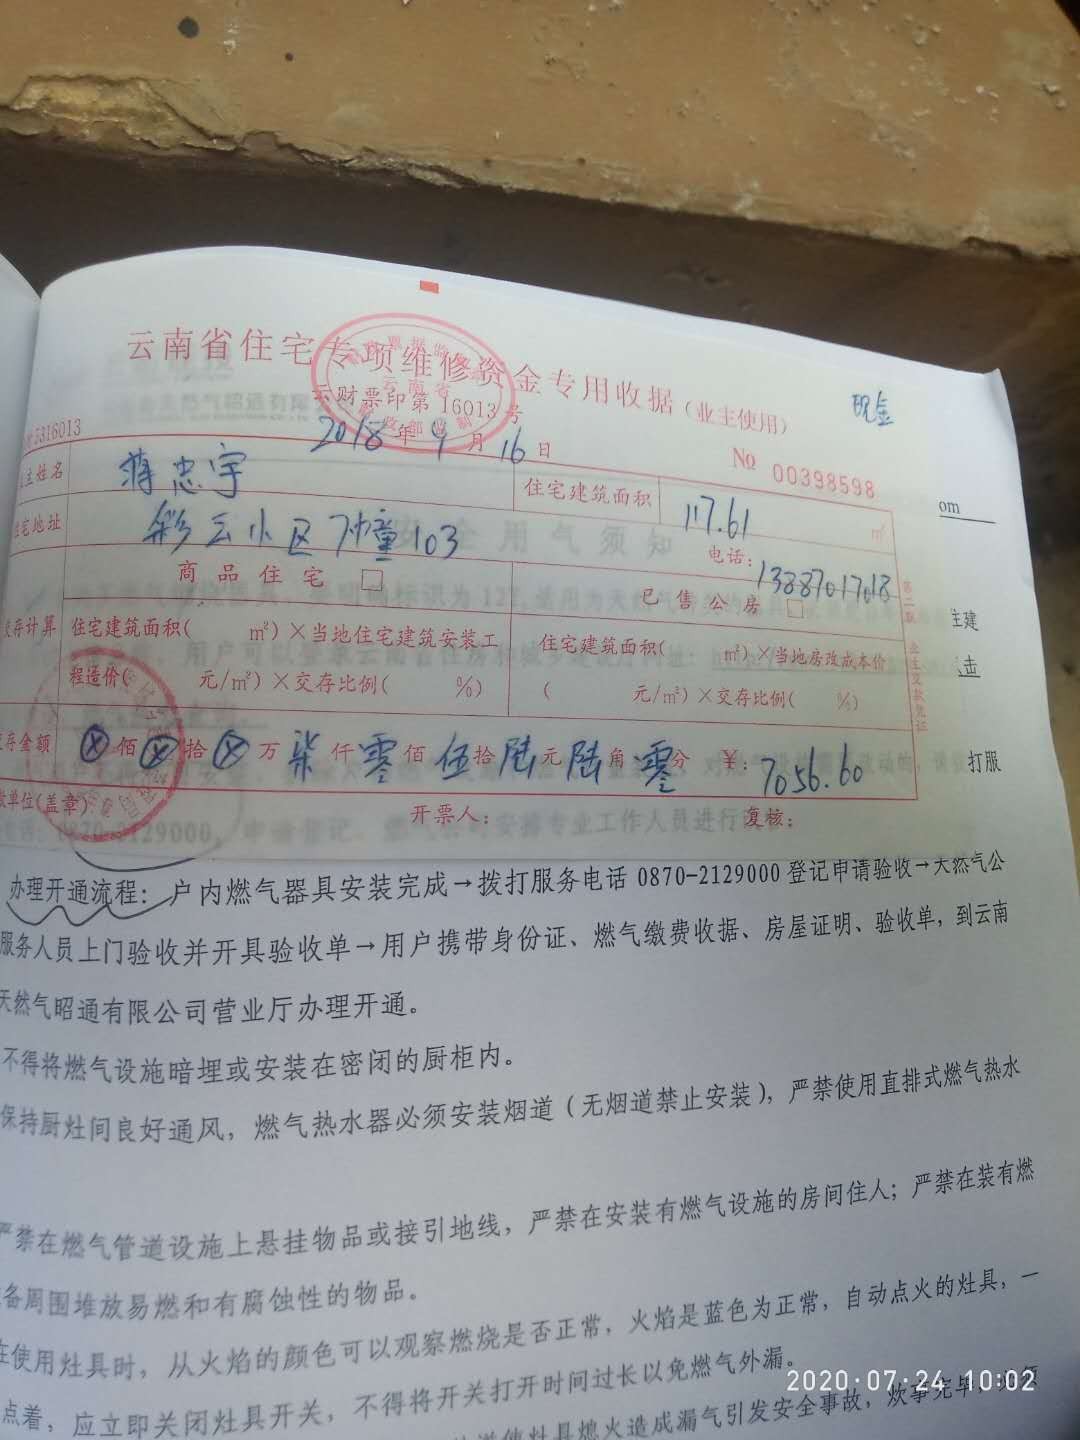 云南省住宅专项维修资金专用收据(业主使用)
现金
云财票印第16013号
5316013
2018年9月16日
№ 00398598
主姓名 蒋忠宇 住宅建筑面积 117.61 ㎡
住宅地址 彩云小区7幢103 电话:13887017018
商品住宅 □ 已售公房 □
交存计算 住宅建筑面积( ㎡)×当地住宅建筑安装工 住宅建筑面积( ㎡)×当地房改成本价
程造价( 元/㎡)×交存比例( %) ( 元/㎡)×交存比例( %)
存金额 ⊗佰⊗拾⊗万柒仟零佰伍拾陆元陆角零分 ¥:7056.60
单位(盖章) 开票人: 复核:
第二联 业主交款凭证
om
住建
点击
打服
安全用气须知
办理开通流程:户内燃气器具安装完成→拨打服务电话 0870-2129000 登记申请验收→天然气公
服务人员上门验收并开具验收单→用户携带身份证、燃气缴费收据、房屋证明、验收单,到云南
天然气昭通有限公司营业厅办理开通。
不得将燃气设施暗埋或安装在密闭的厨柜内。
保持厨灶间良好通风,燃气热水器必须安装烟道(无烟道禁止安装),严禁使用直排式燃气热水
严禁在燃气管道设施上悬挂物品或接引地线,严禁在安装有燃气设施的房间住人;严禁在装有燃
备周围堆放易燃和有腐蚀性的物品。
在使用灶具时,从火焰的颜色可以观察燃烧是否正常,火焰是蓝色为正常,自动点火的灶具,一
点着,应立即关闭灶具开关,不得将开关打开时间过长以免燃气外漏。
使灶具熄火造成漏气引发安全事故,炊事完毕,必须
2020·07·24 10:02